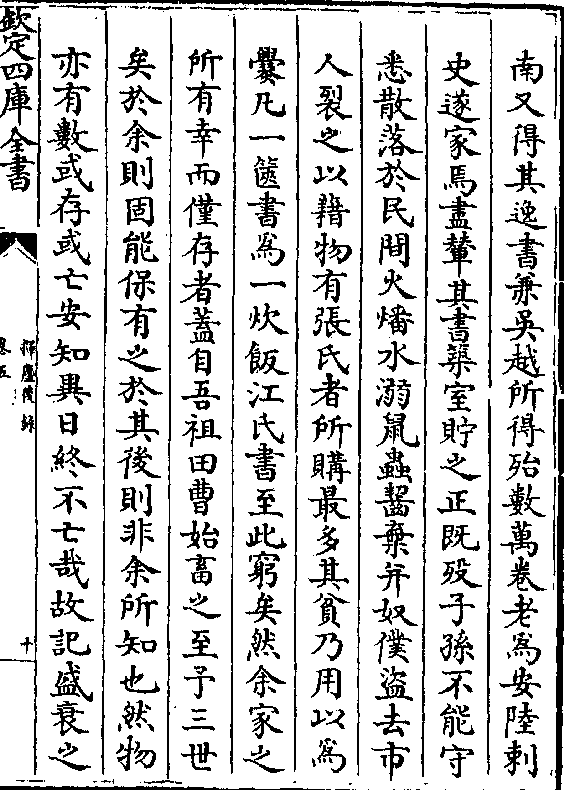 南又得其逸書兼吳越所得殆數萬卷老為安陸刺
史遂家焉盡輦其書築室貯之正既殁子孫不能守
悉散落於民間火燔水溺鼠蟲齧棄并奴僕盜去市
人裂之以藉物有張氏者所購最多其貧乃用以為
爨凡一篋書為一炊飯江氏書至此窮矣然余家之
所有幸而僅存者蓋自吾祖田曹始畜之至予三世
矣於余則固能保有之於其後則非余所知也然物
亦有數或存或亡安知異日終不亡哉故記盛衰之
欽定四庫全書
揮麈後錄
卷五
十